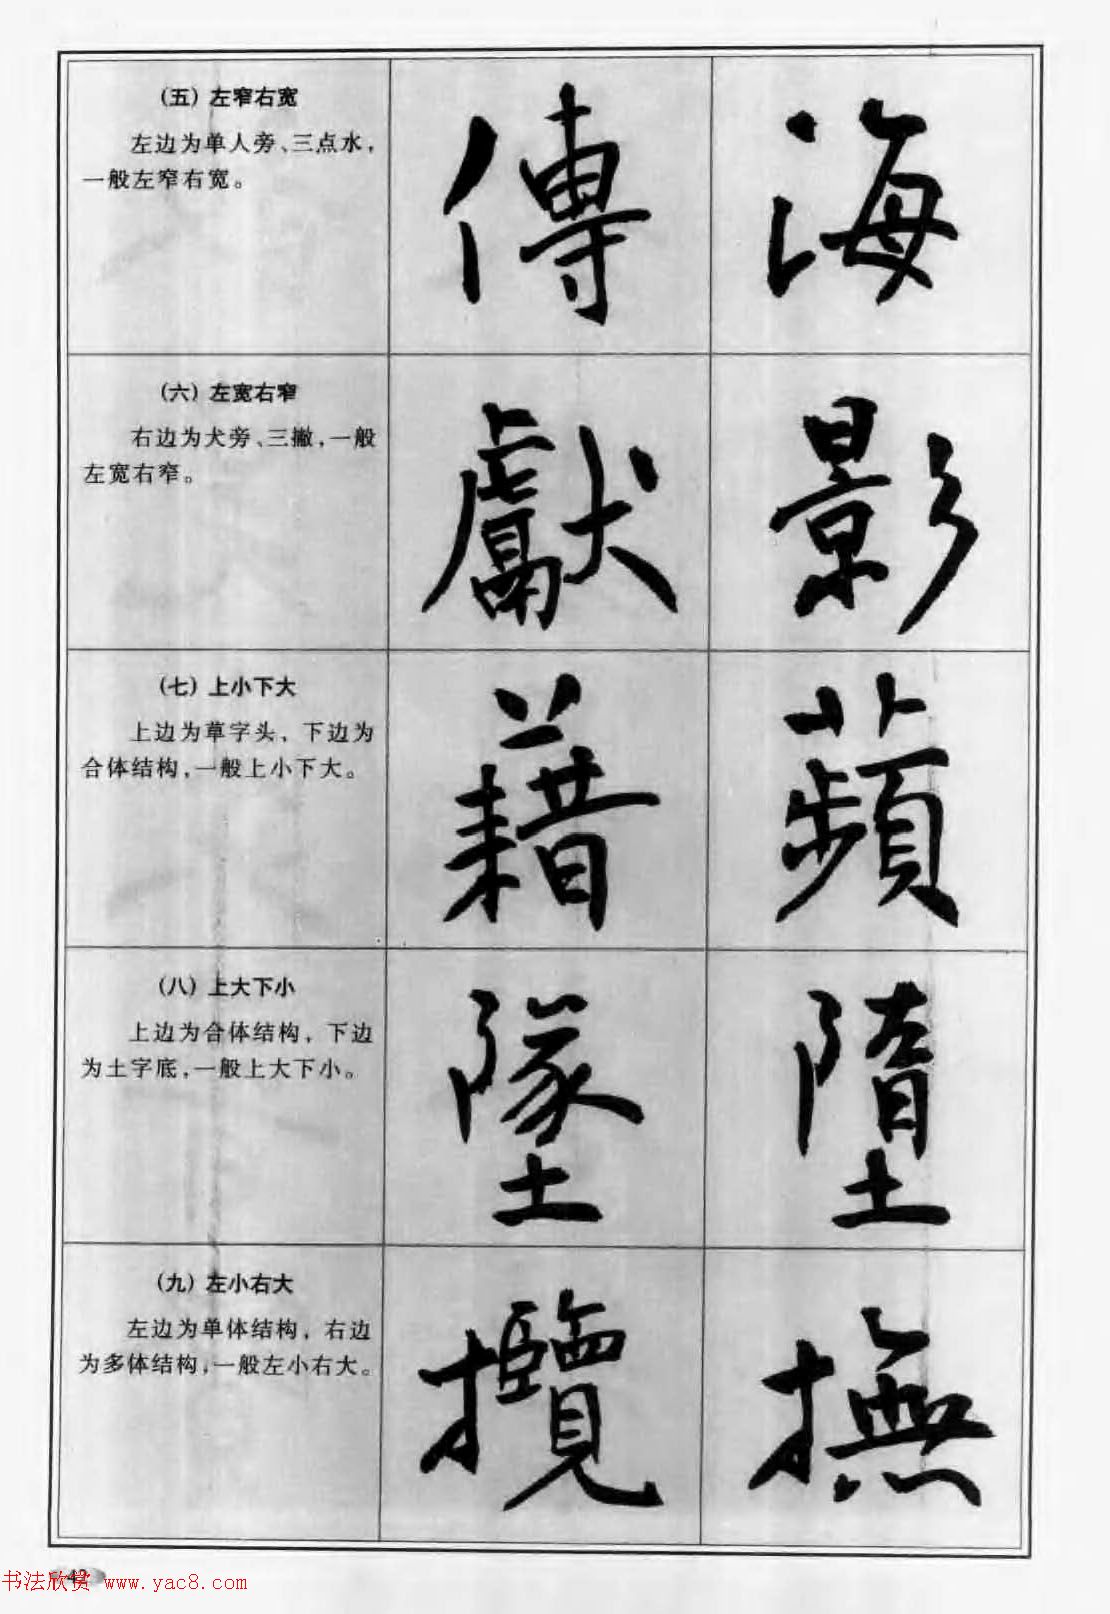 （五）左窄右宽
左边为单人旁、三点水，
一般左窄右宽。
傳 海
（六）左宽右窄
右边为犬旁、三撇，一般
左宽右窄。
獻 影
（七）上小下大
上边为草字头，下边为
合体结构，一般上小下大。
藉 蘋
（八）上大下小
上边为合体结构，下边
为土字底，一般上大下小。
墜 墮
（九）左小右大
左边为单体结构，右边
为多体结构，一般左小右大。
攬 撫
书法欣赏 www.yac8.com